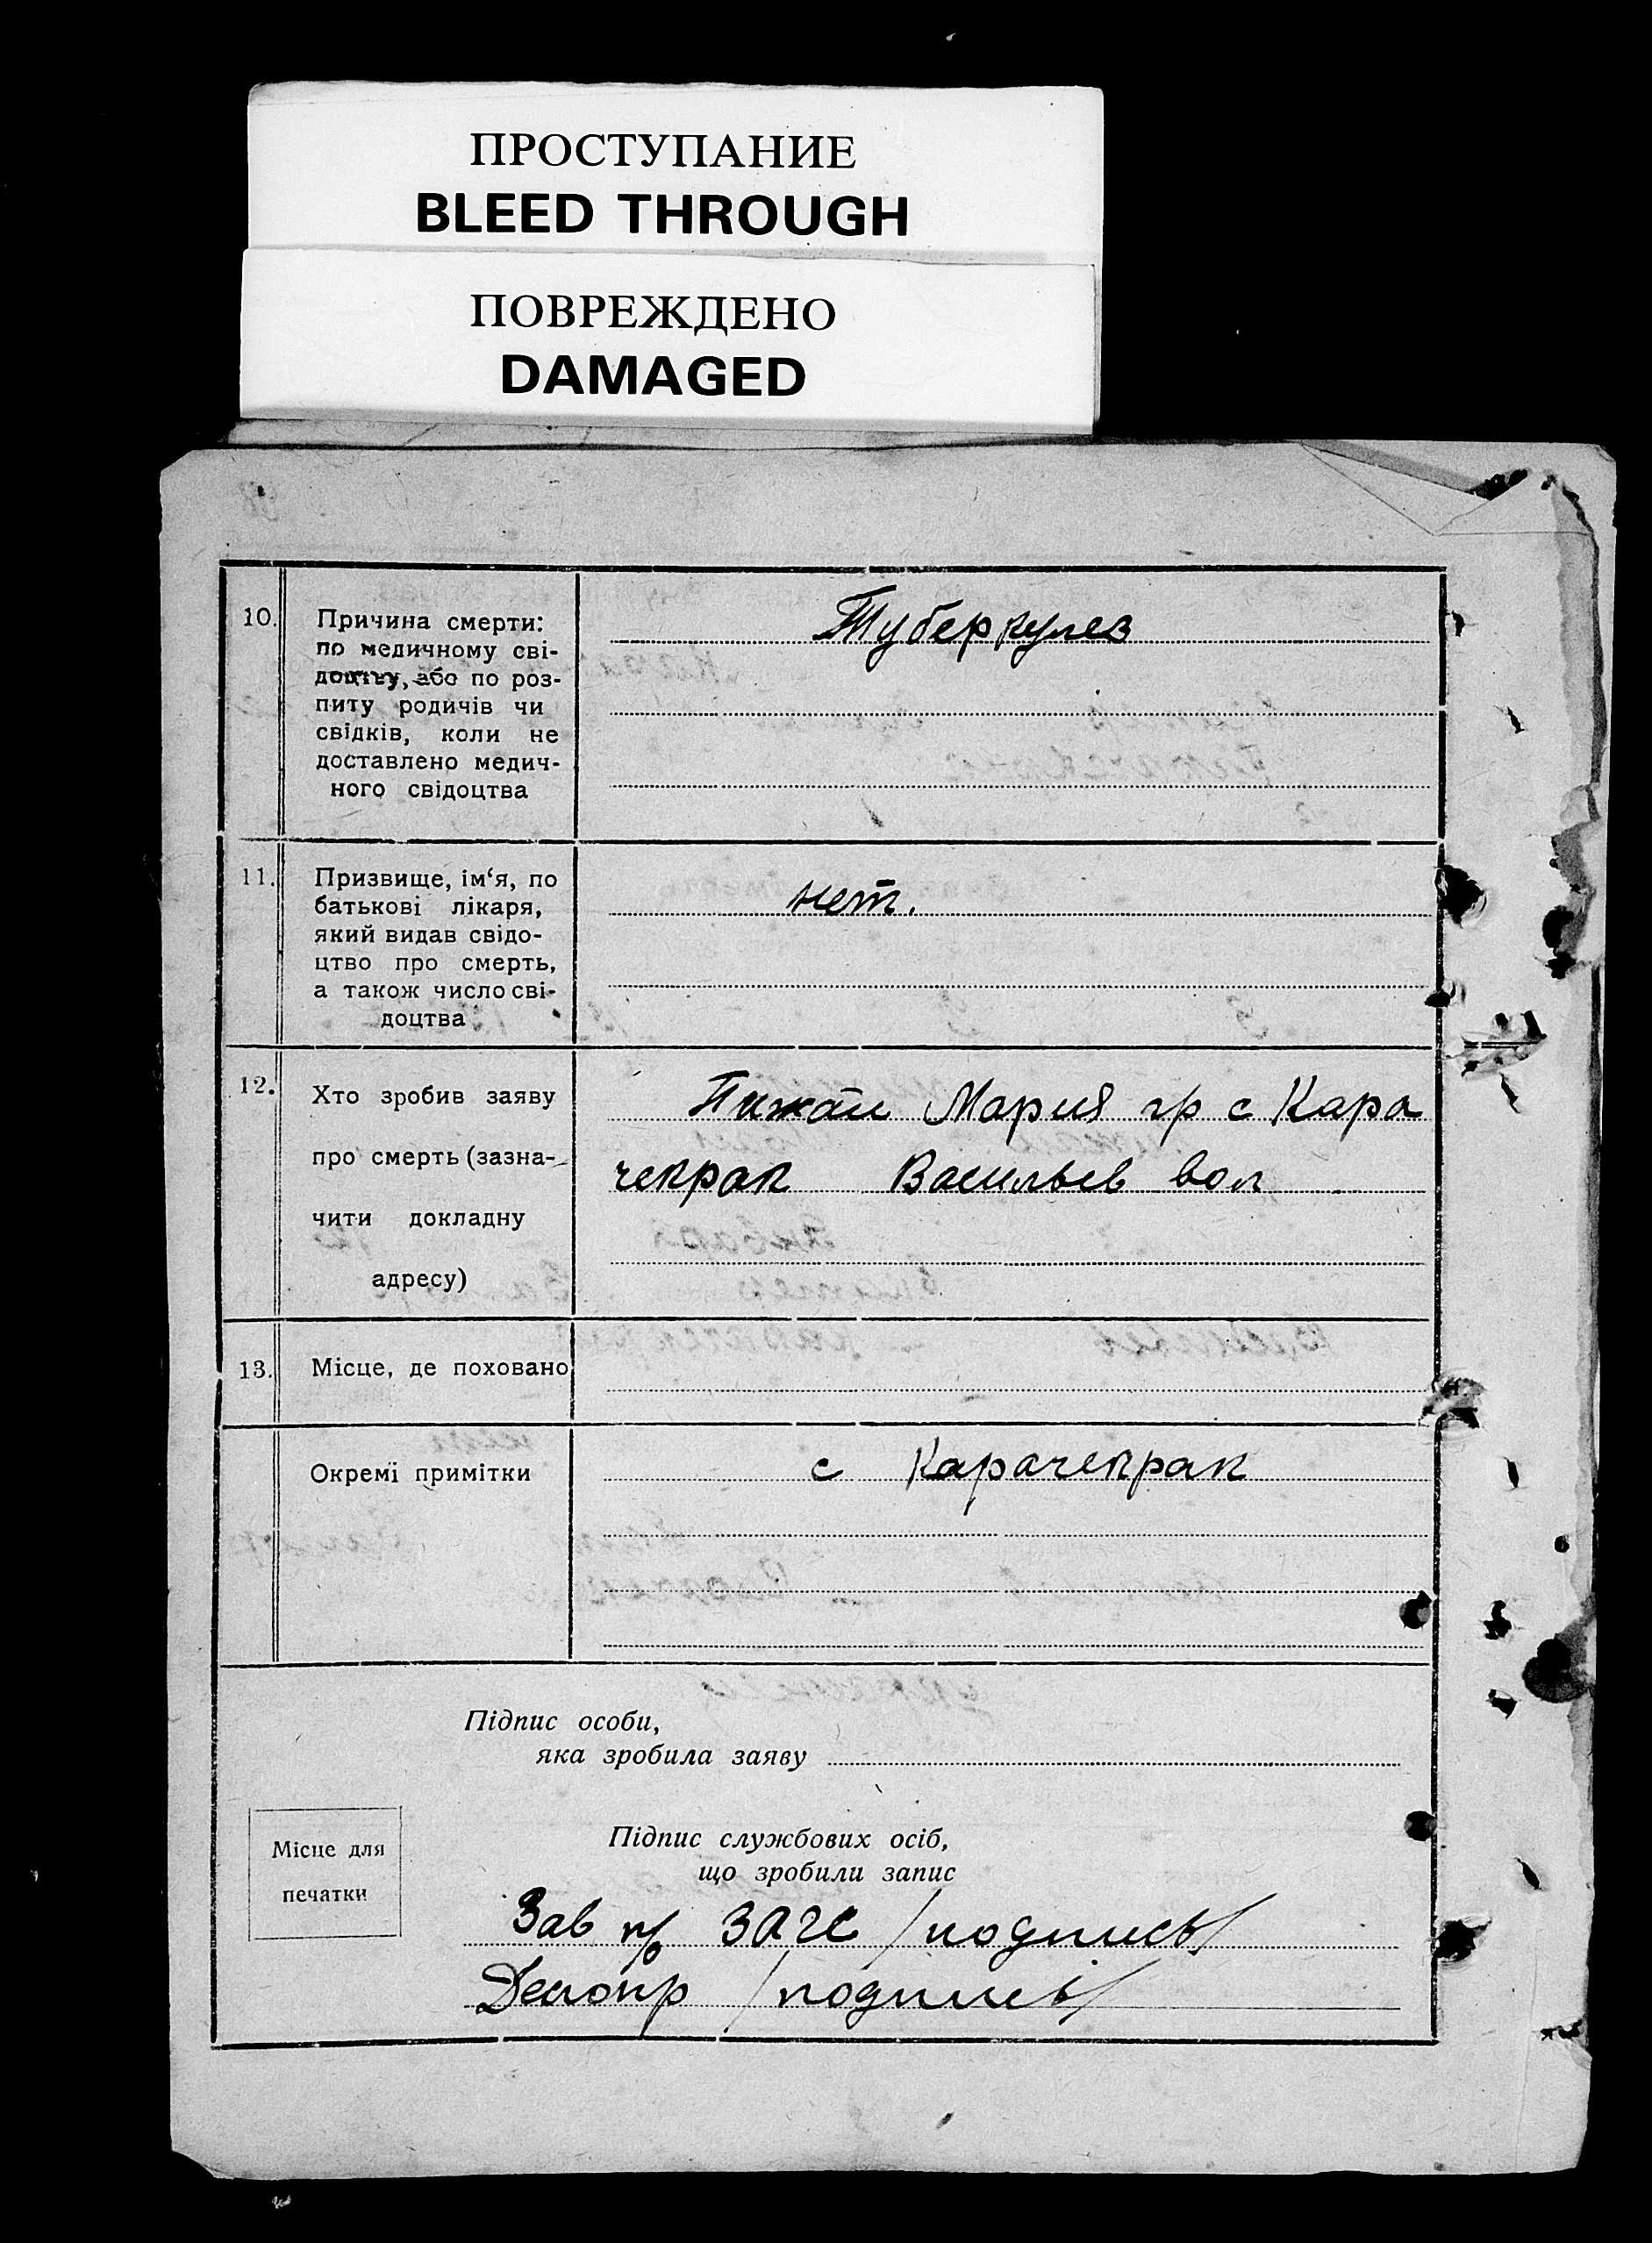 ПРОСТУПАНИЕ
BLEED THROUGH
ПОВРЕЖДЕНО
DAMAGED
10. Причина смерти: Туберкулез
по медичному сві-
доцтву, або по роз-
питу родичів чи
свідків, коли не
доставлено медич-
ного свідоцтва
11. Призвище, ім‘я, по нет.
батькові лікаря,
який видав свідо-
цтво про смерть,
а також число сві-
доцтва
12. Хто зробив заяву Пижай Мария гр с Кара
про смерть (зазна- чекрак Васильев вол
чити докладну
адресу)
13. Місце, де поховано
Окремі примітки с Карачекрак
Підпис особи,
яка зробила заяву
Місце для
печатки
Підпис службових осіб,
що зробили запис
Зав п/о ЗАГС /подпись/
Делопр /подпись/